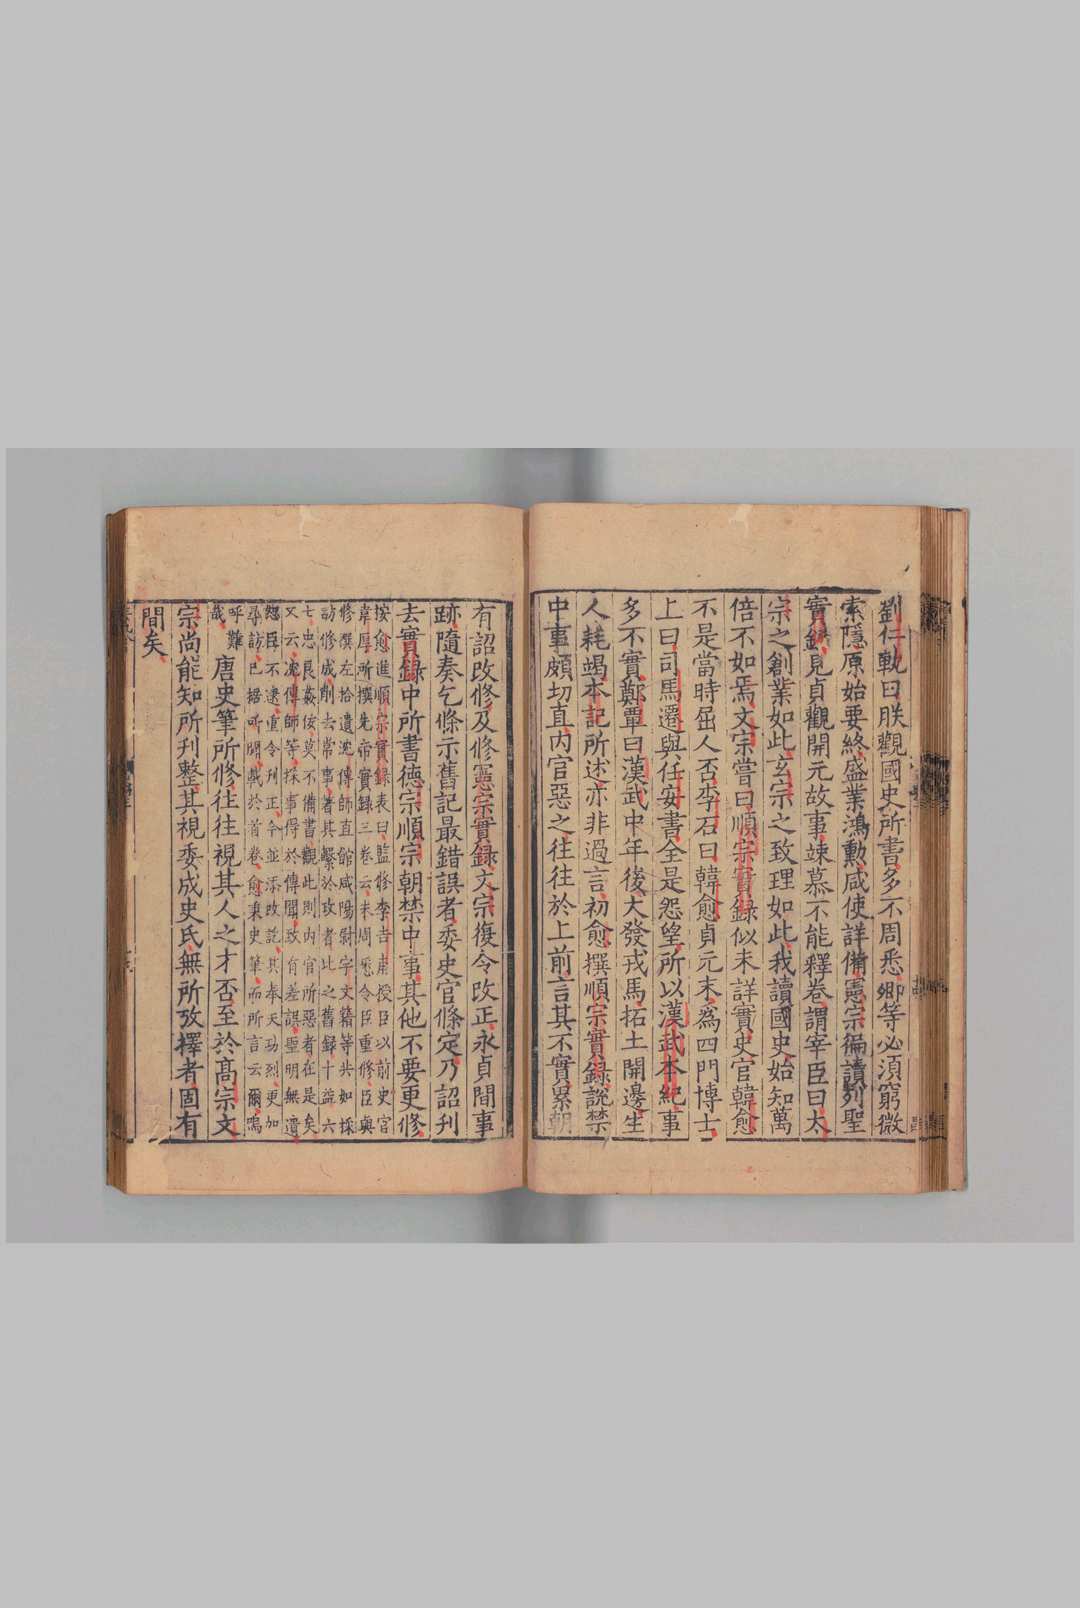 劉仁軌曰朕觀國史所書多不周悉卿等必須窮微
索隱原始要終盛業鴻勳咸使詳備憲宗徧讀列聖
實錄見貞觀開元故事竦慕不能釋卷謂宰臣曰太
宗之創業如此玄宗之致理如此我讀國史始知萬
倍不如焉文宗嘗曰順宗實錄似未詳實史官韓愈
不是當時屈人否李石曰韓愈貞元末爲四門博士
上曰司馬遷與任安書全是怨望所以漢武本紀事
多不實鄭覃曰漢武中年後大發戎馬拓土開邊生
人耗竭本記所述亦非過言初愈撰順宗實錄說禁
中事頗切直内官惡之往往於上前言其不實累朝
有詔改修及修憲宗實錄文宗復令改正永貞間事
跡隨奏乞條示舊記最錯誤者委史官條定乃詔刊
去實錄中所書德宗順宗朝禁中事其他不要更修
按愈進順宗實錄表曰監修李吉甫授臣以前史官
韋厚所撰先帝實錄三卷云未周悉令臣重修臣與
修撰左拾遺沈傳師直館咸陽尉宇文籍等共加採
訪修成削去常事著其繫於政者比之舊錄十益六
七忠良姦佞莫不備書觀此則内官所惡者在是矣
又云沈傳師等採事得於傳聞致有差誤聖明無遺
恕臣不逮重令刊正今並添改訖其奉天功烈更加
尋訪已據所聞載於首卷愈秉史筆而所言云爾嗚
呼難
哉
唐史筆所修往往視其人之才否至於高宗文
宗尚能知所刊整其視委成史氏無所攷擇者固有
間矣